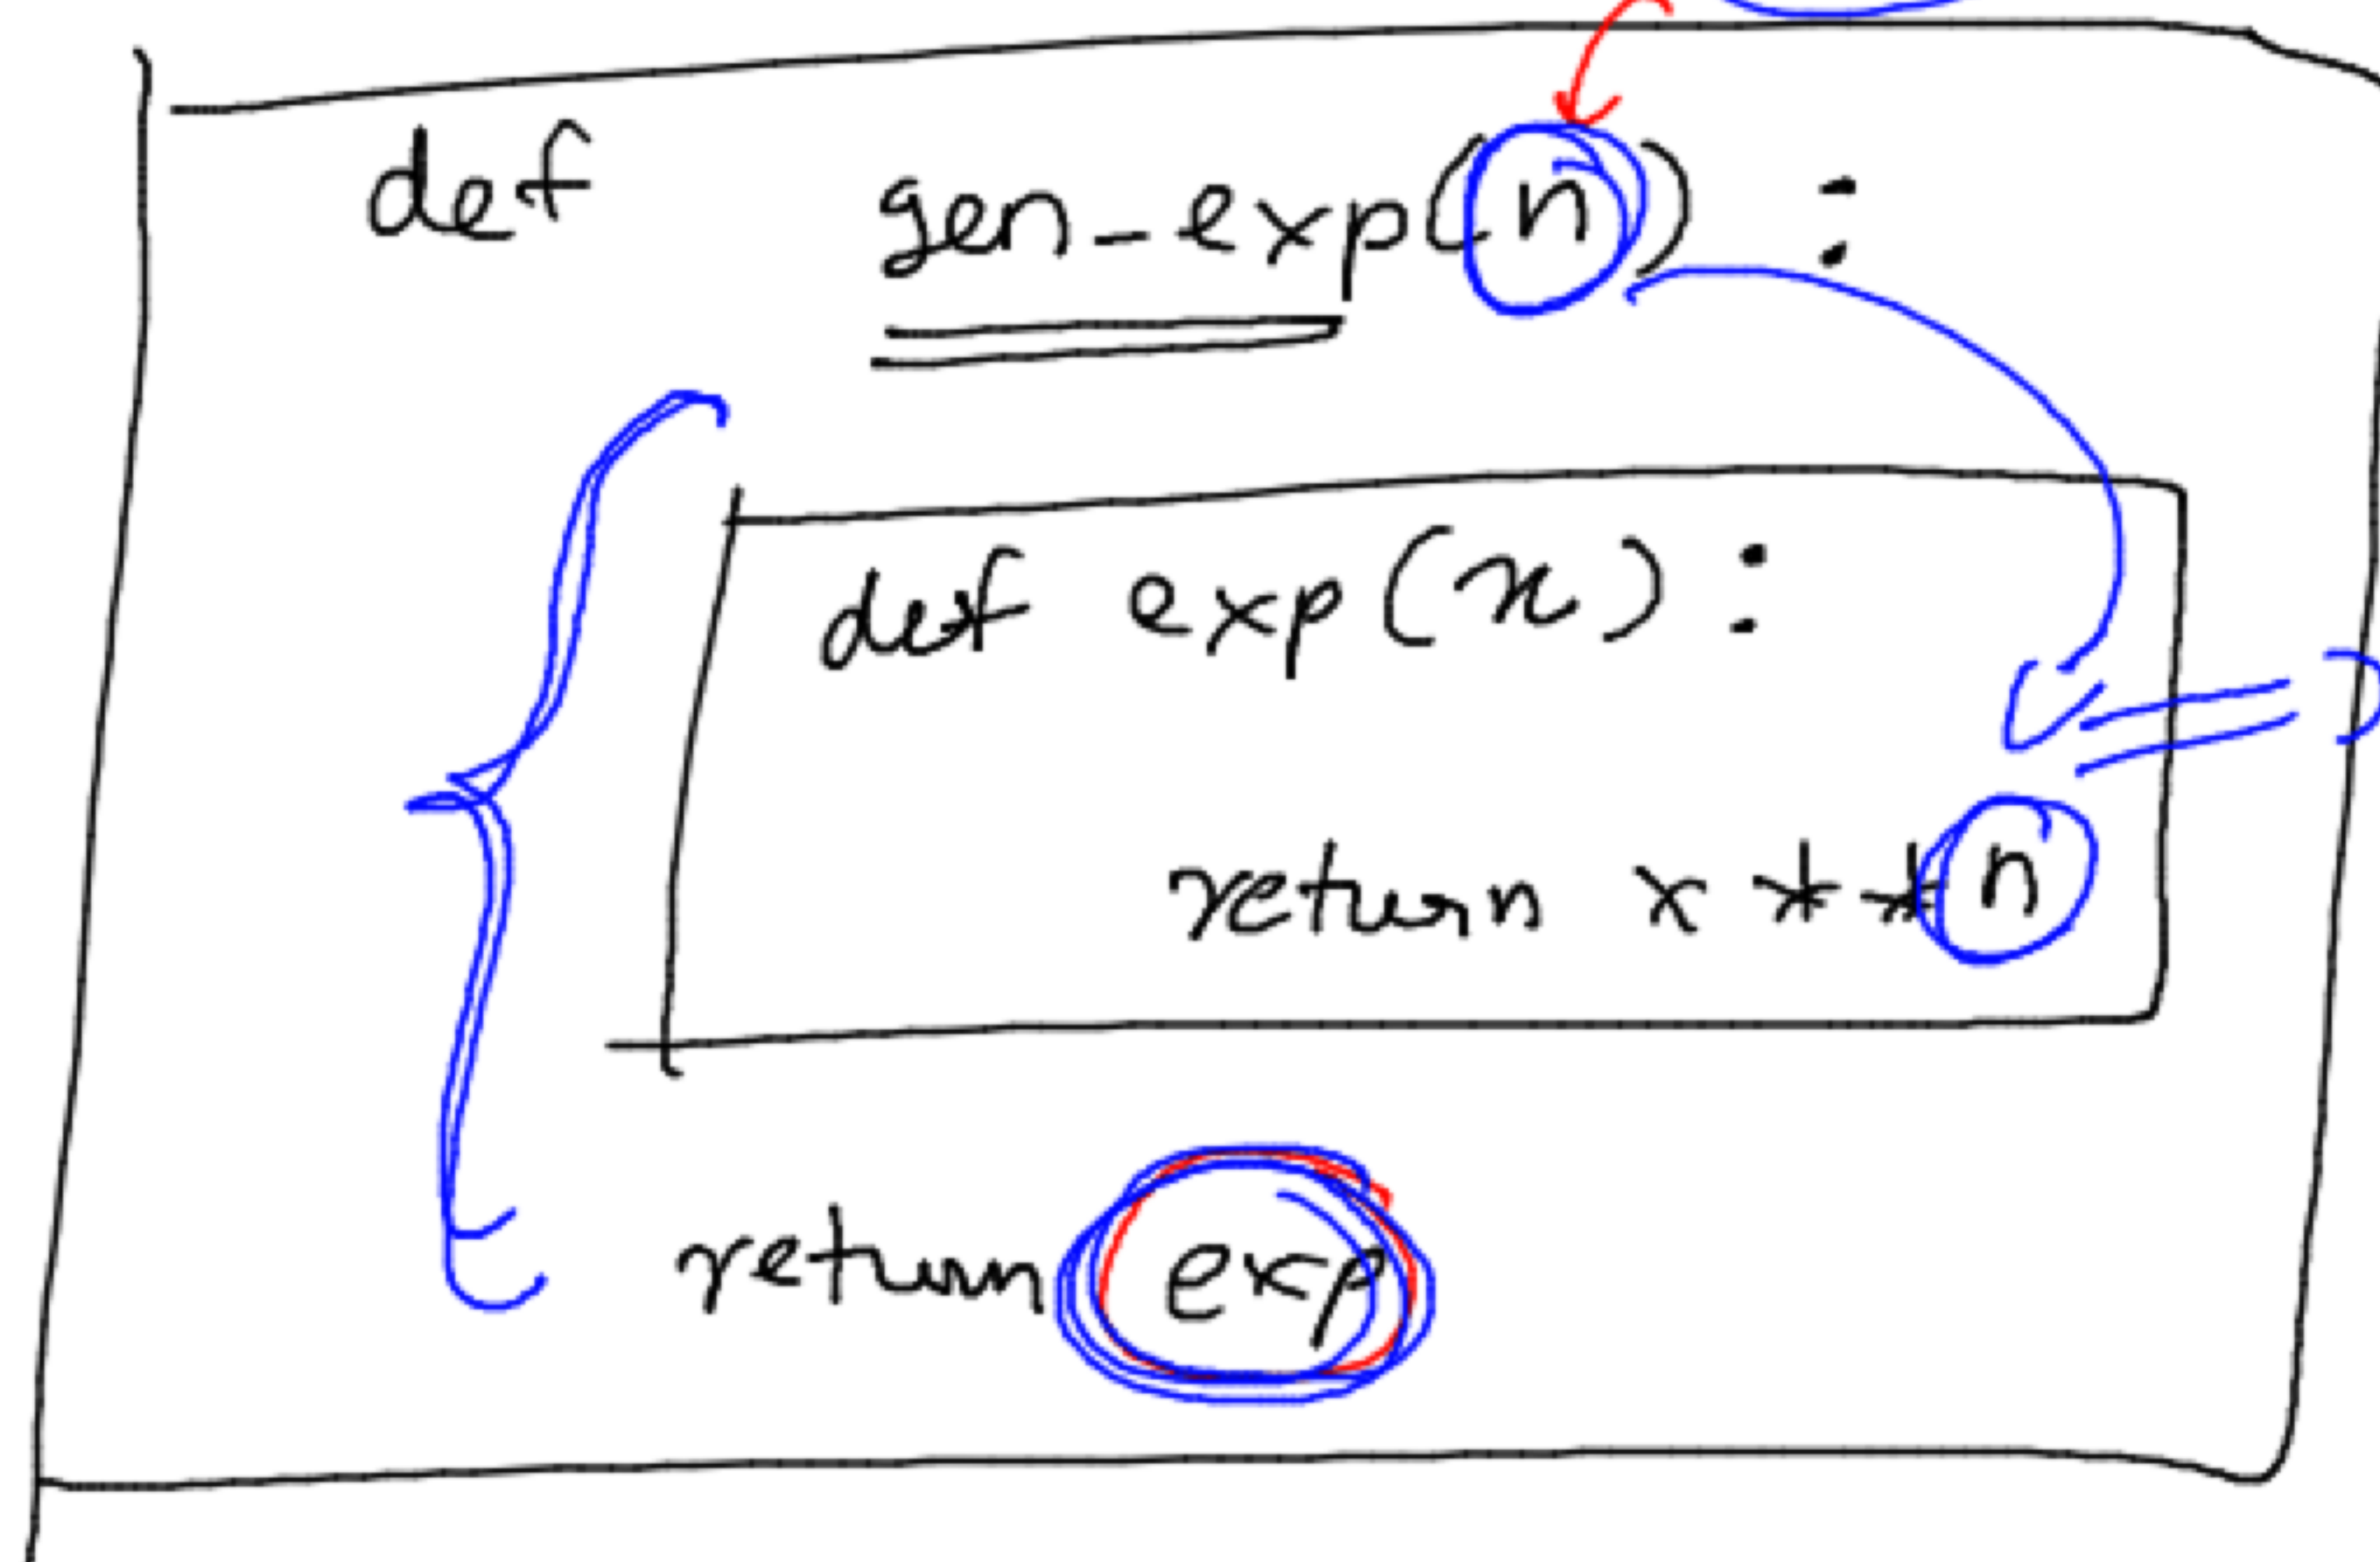 def gen_exp(n):
def exp(x):
return x **n
return exp